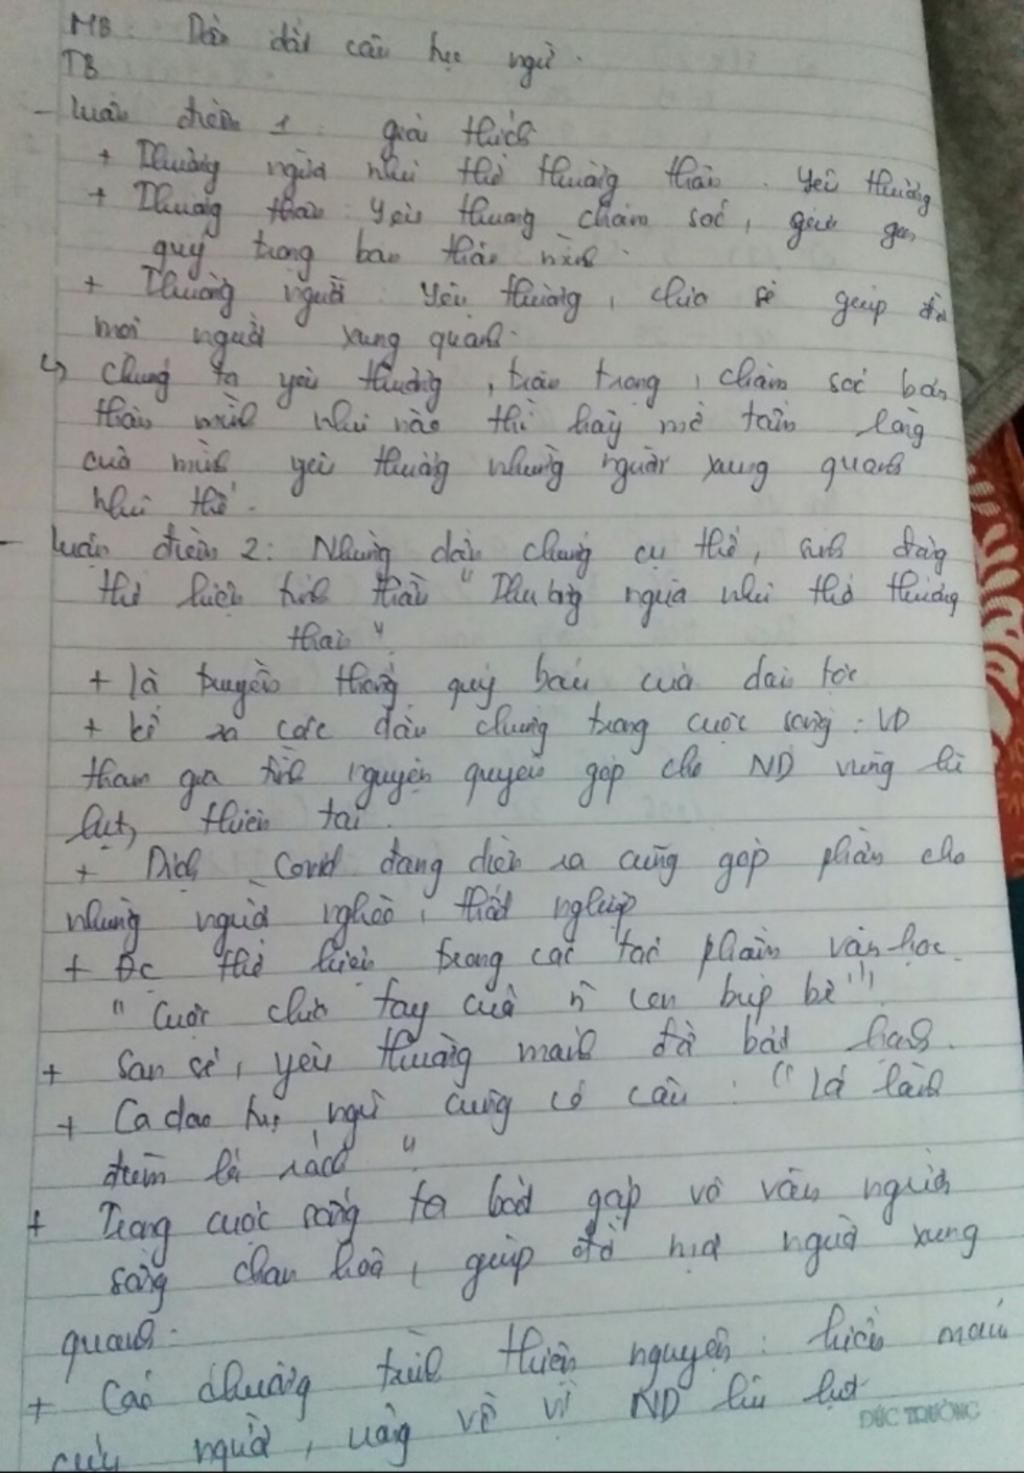 MB: Dẫn dắt câu tục ngữ.
TB
- Luận điểm 1: giải thích
+ Thương người như thể thương thân: yêu thương
+ Thương thân: yêu thương chăm sóc, giữ gìn
quý trọng bản thân mình.
+ Thương người: yêu thương, chia sẻ giúp đỡ
mọi người xung quanh.
↳ Chúng ta yêu thương, trân trọng, chăm sóc bản
thân mình như nào thì hãy mở tấm lòng
của mình yêu thương những người xung quanh
như thế.
- Luận điểm 2: Những dẫn chứng cụ thể, sinh động
thể hiện tinh thần "Thương người như thể thương
thân"
+ là truyền thống quý báu của dân tộc
+ kể ra các dẫn chứng trong cuộc sống: VD
tham gia tình nguyện quyên góp cho ND vùng lũ
lụt, thiên tai.
+ Dịch Covid đang diễn ra cũng góp phần cho
những người nghèo, thất nghiệp
+ Đc thể hiện trong các tác phẩm văn học
"Cuộc chia tay của n con búp bê".
+ San sẻ, yêu thương mảnh đời bất hạnh.
+ Ca dao tục ngữ cũng có câu: "lá lành
đùm lá rách".
+ Trong cuộc sống ta bắt gặp vô vàn người
sống chan hoà, giúp đỡ mọi người xung
quanh.
+ Các chương trình thiện nguyện: hiến máu
cứu người, ủng vì ND lũ lụt
ĐỨC TRƯỜNG